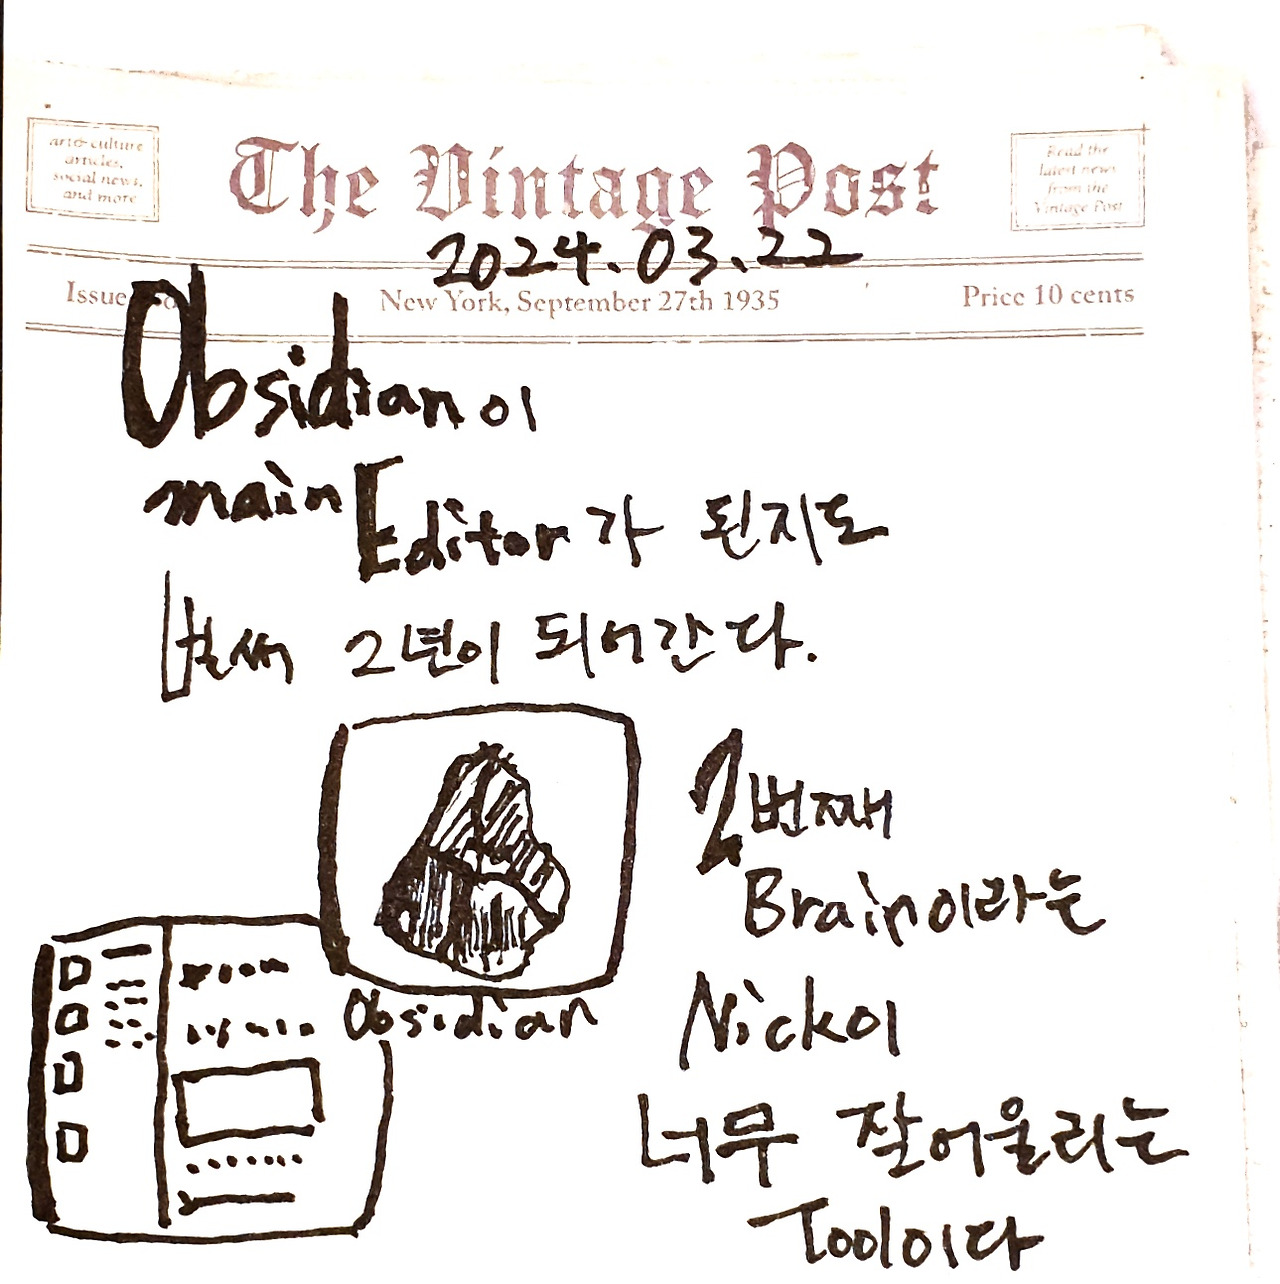 art & culture
articles,
social news,
and more
The Vintage Post
Read the
latest news
from the
Vintage Post
2024.03.22
Issue
New York, September 27th 1935
Price 10 cents
Obsidian이
main Editor가 된지도
벌써 2년이 되어간다.
2번째
Brain이라는
Nick이
너무 잘어울리는
Tool이다
Obsidian